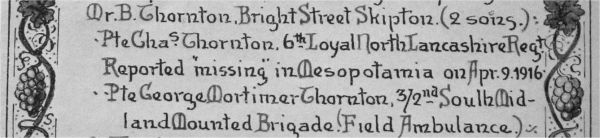 Mr. B. Thornton, Bright Street Skipton. (2 sons.):
Pte Chas. Thornton, 6th Loyal North Lancashire Regt
Reported "missing" in Mesopotamia on Apr. 9. 1916.
Pte George Mortimer Thornton, 3/2nd South Mid-
land Mounted Brigade (Field Ambulance.)